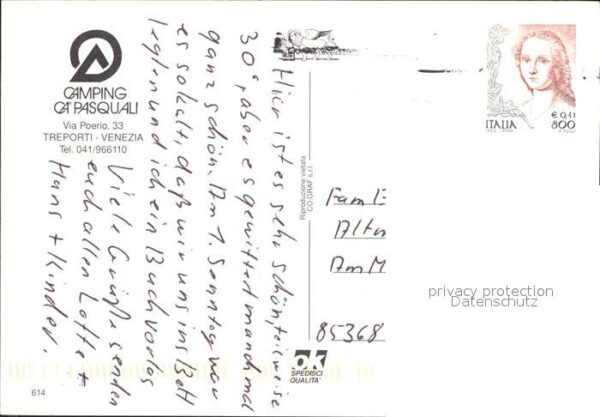 CAMPING
CA' PASQUALI
Via Poerio, 33
TREPORTI - VENEZIA
Tel. 041/966110
Hier ist es sehr schön, teilweise
30°, aber es gewittert manchmal
ganz schön. Am 1. Sonntag war
es so kalt, daß wir uns ins Bett
legten und ich ein Buch vorlas
Viele Grüße senden
euch allen Lotte +
Hans + Kinder.
Riproduzione vietata
CO.GRAF s.r.l.
€ 0,41
ITALIA 800
Fam E
Altn
Am M
85368
privacy protection
Datenschutz
OK
SPEDISCI
QUALITA'
614